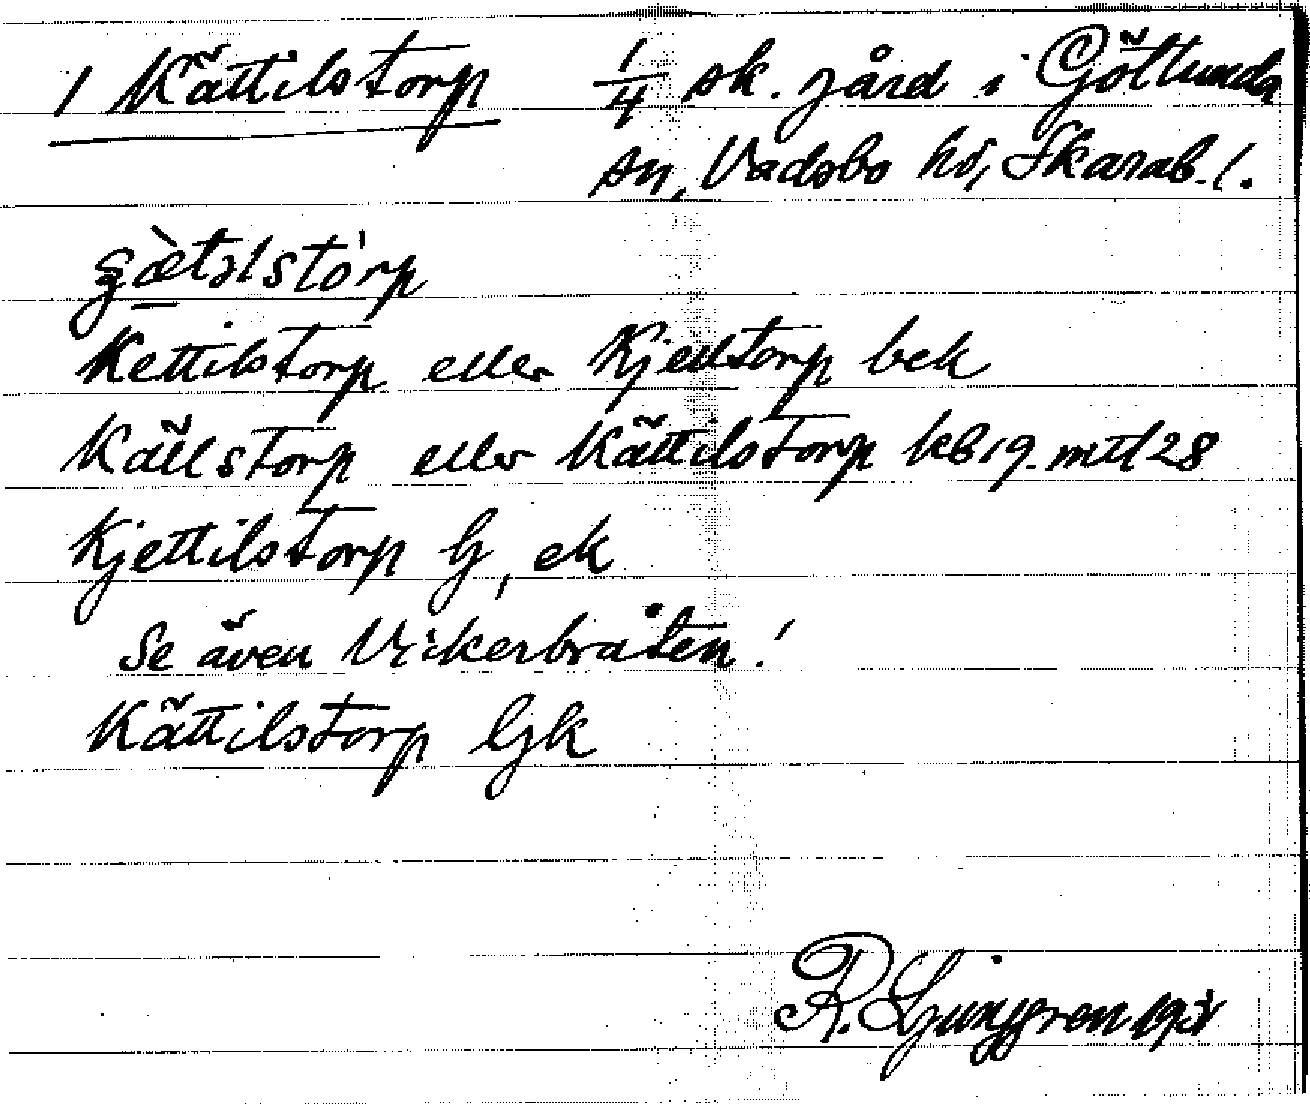 1 Kättilstorp 1/4 sk. gård i Götlunda
sn, Vadsbo hd, Skarab. l.
Kettilstorp eller Kjelltorp bek
Källstorp eller Kättilstorp kb 19. mtl 28
Kjettilstorp G, ek
Se även Vikerbråten!
Kättilstorp Ggk
R. Ljunggren